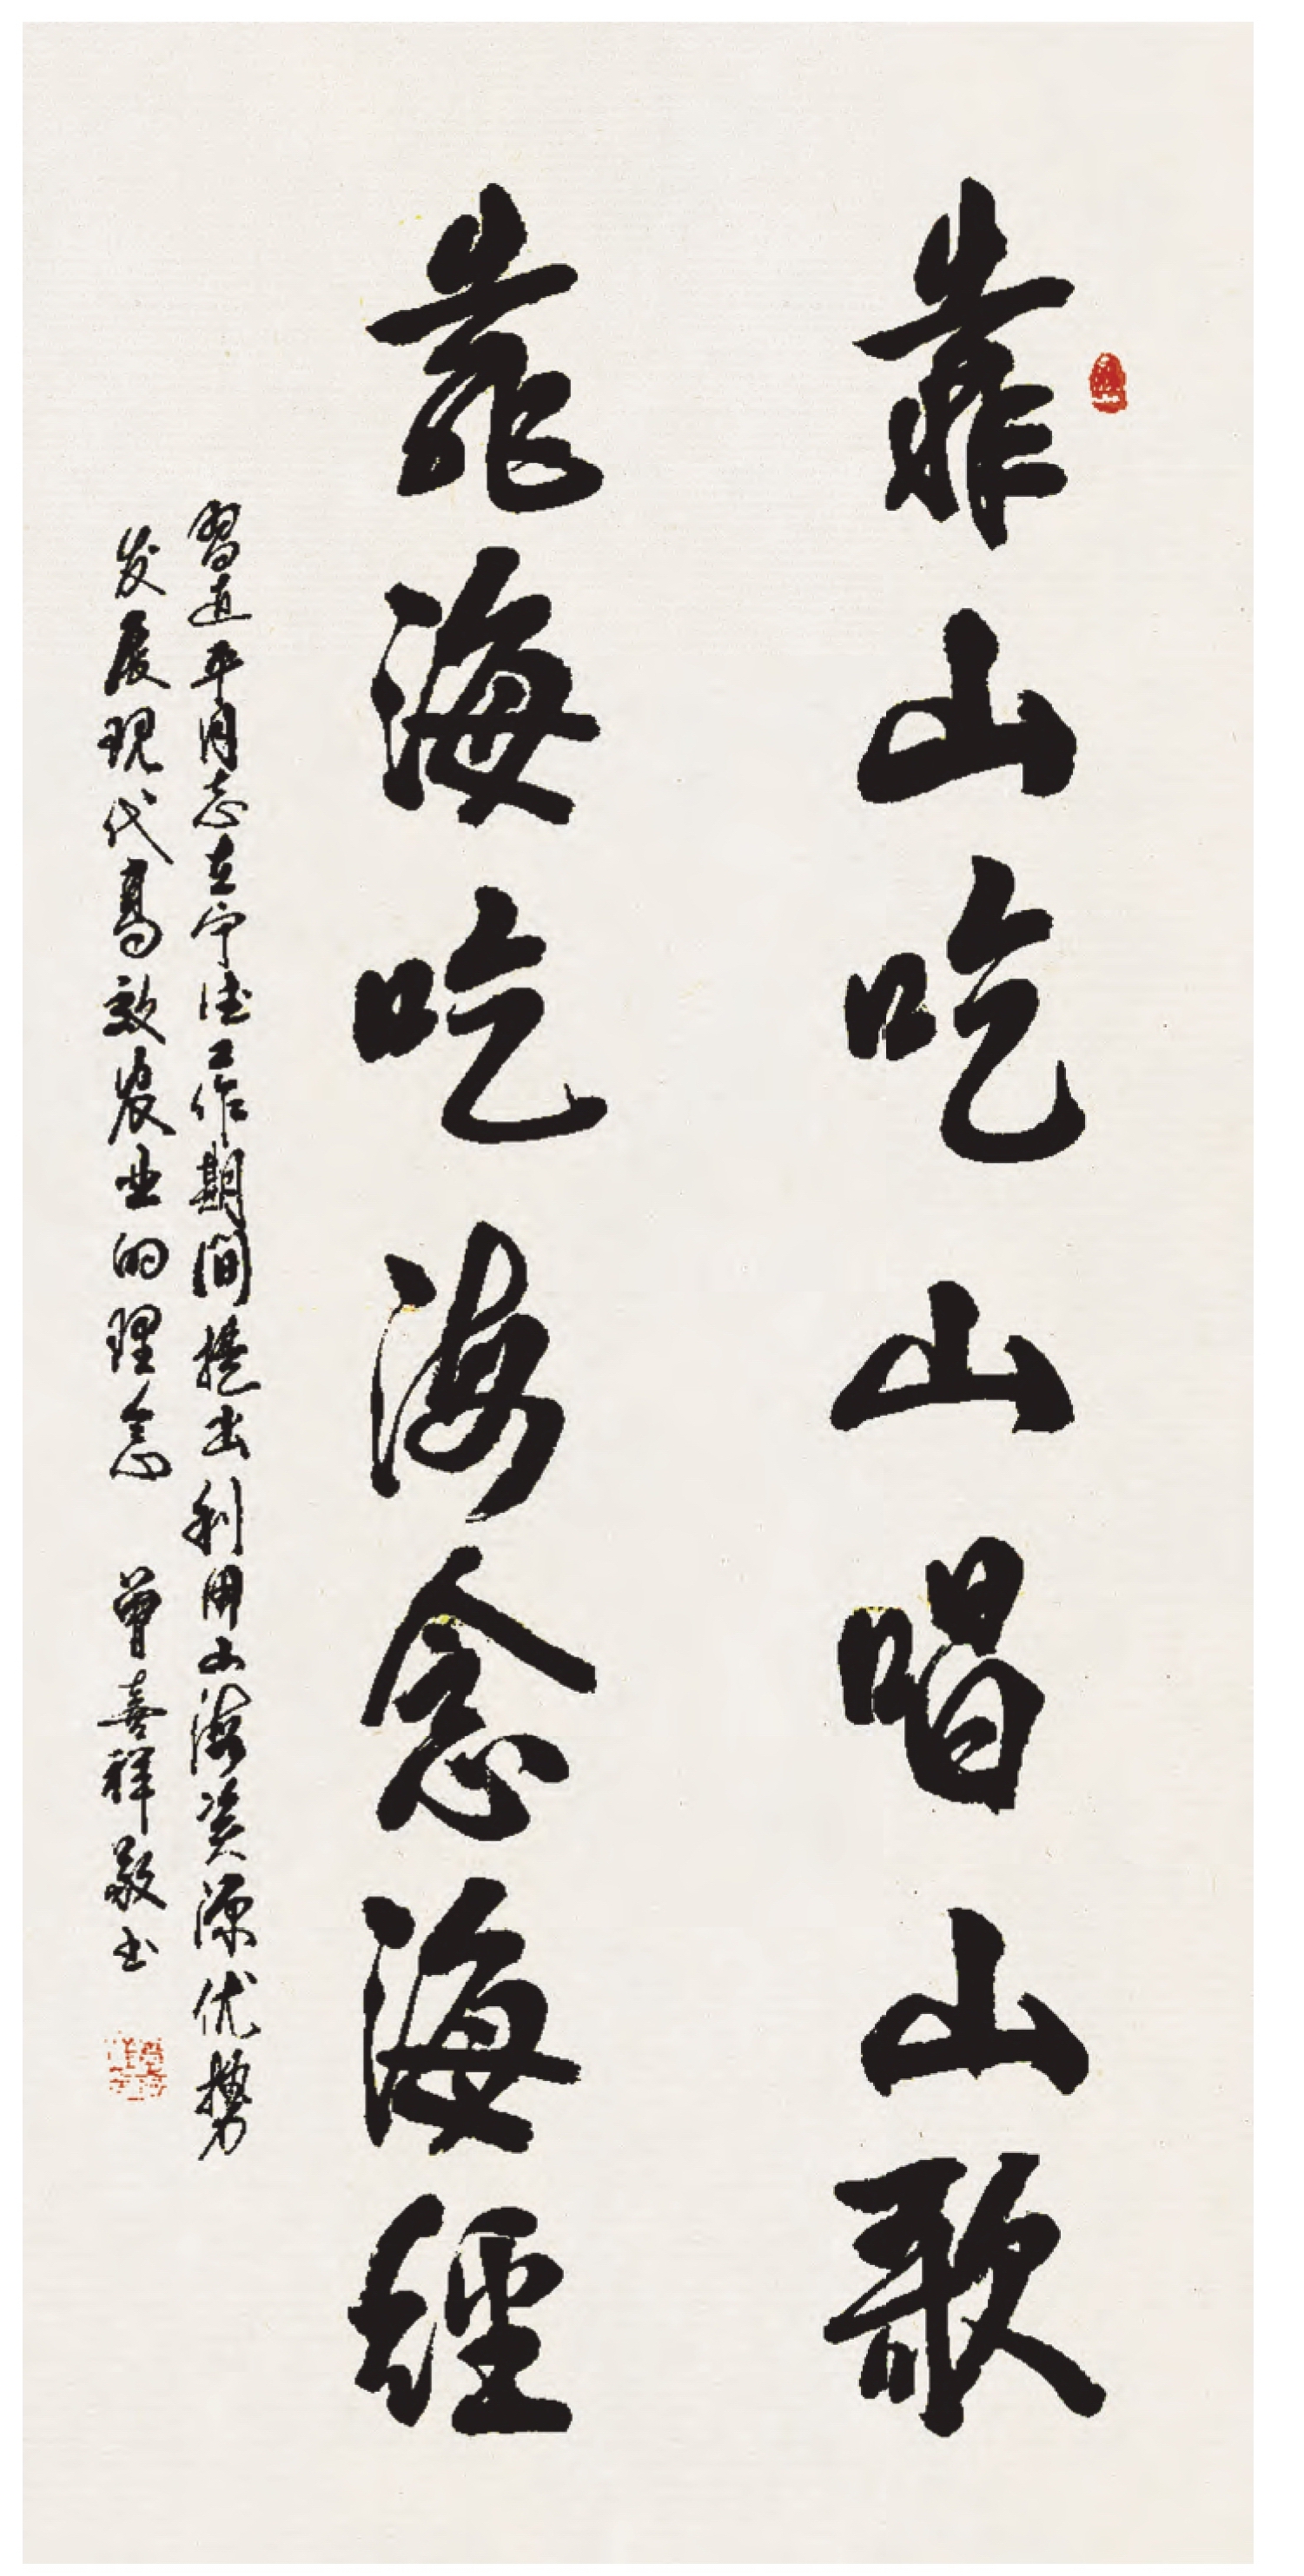 靠山吃山唱山歌
靠海吃海念海經
習近平同志在宁德工作期间提出利用山海资源优势
发展现代高效农业的理念 曾喜祥敬书